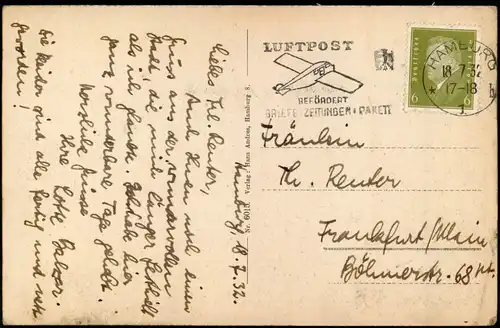 Hamburg, 18.7.32.
Liebes Frl. Reuter,
Auch Ihnen mal einen
Gruss aus der wundervollen
Stadt, die mich länger festhält
als ich glaubte. Habe hier
ganz wunderbare Tage gehabt.
Herzliche Grüsse
Ihre Lotte
Die Kleider sind alle fertig und nett
geworden!
Nr. 6010. Verlag: Hans Andres, Hamburg 8.
LUFTPOST
BEFÖRDERT
BRIEFE·ZEITUNGEN·PAKETE
HAMBURG
18.7.32
* 17-18
Deutsches
6 6
Fräulein
Th. Reuter
Frankfurt/Main
Böhmerstr. 68